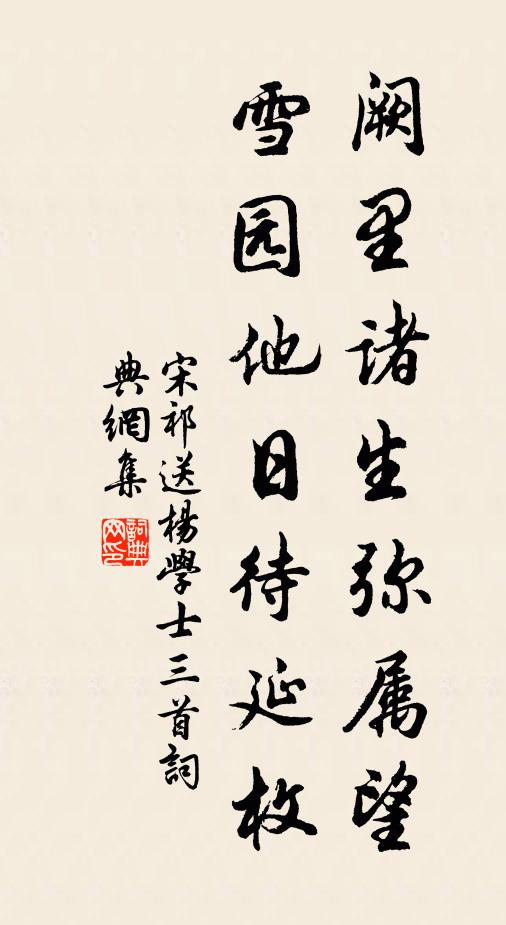 阙里诸生弥属望
雪园他日待延枚
宋祁送楊學士三首詞
典網集
詞典网印